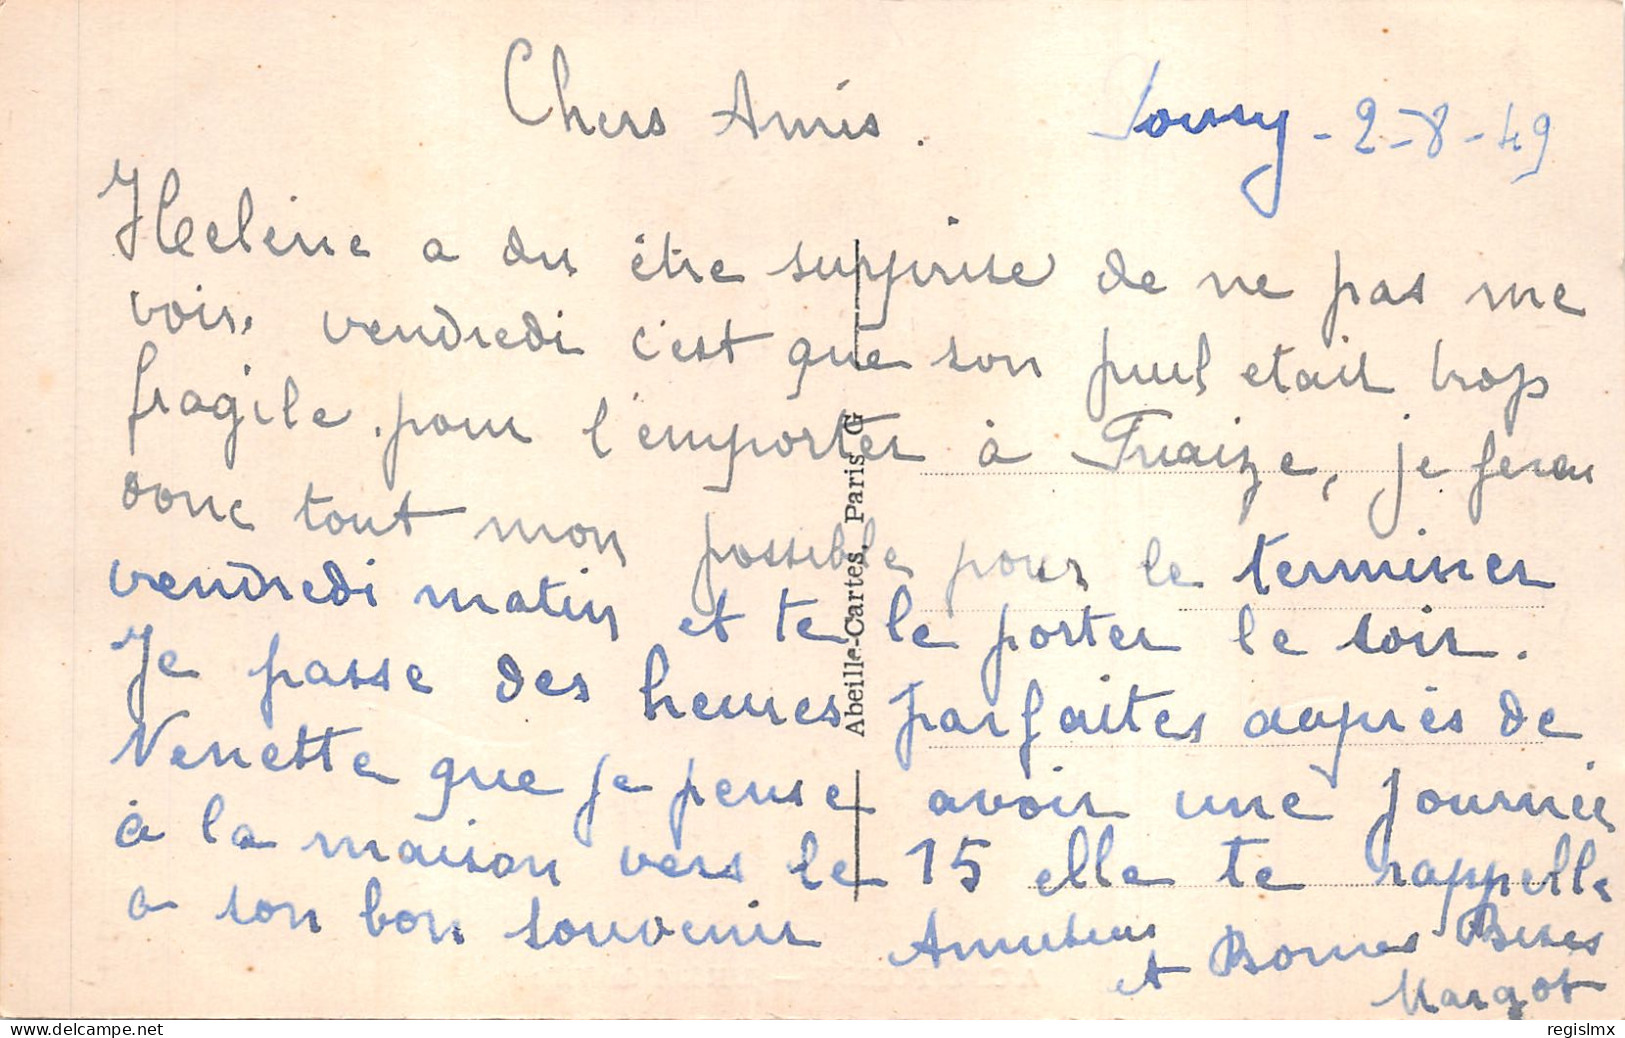 Chers Amis. 2-8-49
Helène a du être surprise de ne pas me
voir. vendredi c'est que son pull etait trop
fragile. pour l'emporter à Fraize, je ferai
donc tout mon possible pour le terminer
vendredi matin et te le porter le soir.
Je passe des heures parfaites auprès de
Nenette que je pense avoir une journée
à la maison vers le 15 elle te rappelle
a son bon souvenir
et Bonnes Bises
Margot
Abeille-Cartes, Paris G
regislmx